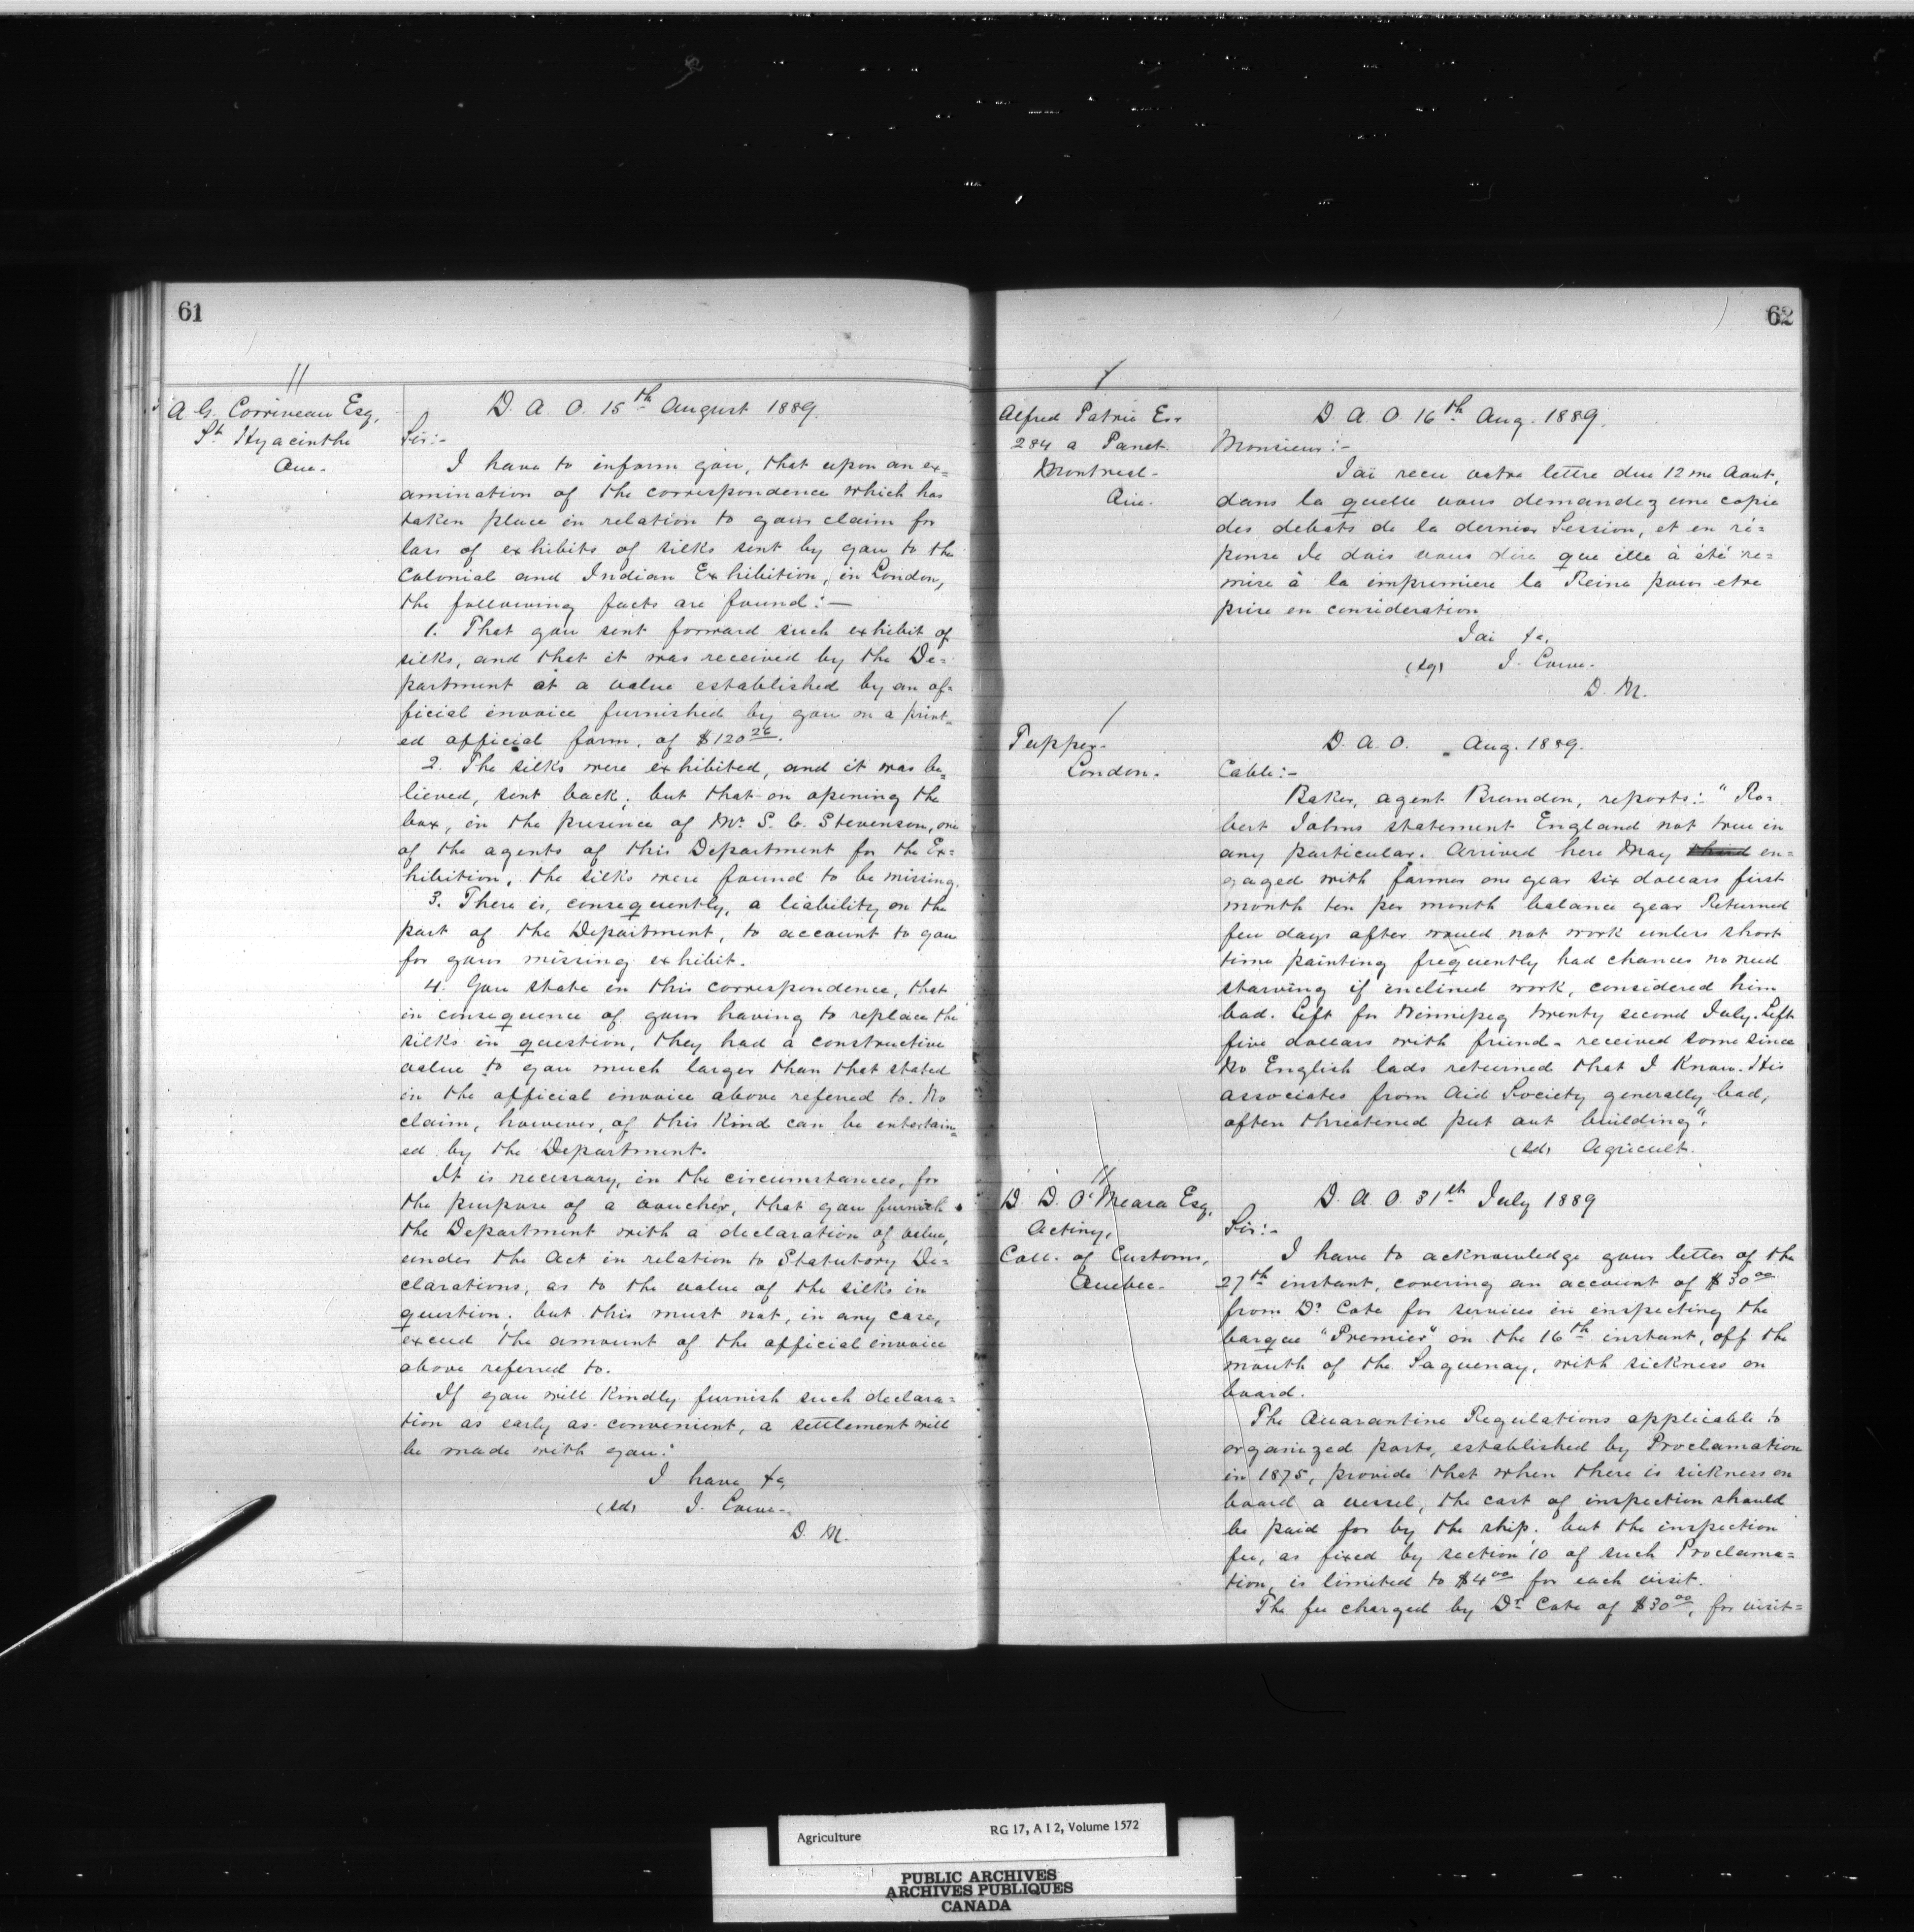 61
A. G. Corriveau Esq,
St Hyacinthe
Que-
D. A. O. 15th August 1889.
Sir:-
I have to inform you, that upon an ex=
amination of the correspondence which has
taken place in relation to your claim for
loss of exhibits of silks sent by you to the
Colonial and Indian Exhibition, in London,
the following facts are found:—
1. That you sent forward such exhibit of
silks, and that it was received by the De=
partment at a value established by an of=
ficial invoice furnished by you on a print=
ed official form, of $120 26.
2. The silks were exhibited, and it was be=
lieved, sent back; but that on opening the
box, in the presence of Mr S. C. Stevenson, one
of the agents of this Department for the Ex=
hibition, the silks were found to be missing.
3. There is, consequently, a liability on the
part of the Department, to account to you
for your missing exhibit.
4. You state in this correspondence, that
in consequence of your having to replace the
silks in question, they had a constructive
value to you much larger than that stated
in the official invoice above referred to. No
claim, however, of this kind can be entertain=
ed by the Department.
It is necessary, in the circumstances, for
the purpose of a voucher, that you furnish
the Department with a declaration of value,
under the Act in relation to Statutory De=
clarations, as to the value of the silks in
question; but this must not, in any case,
exceed the amount of the official invoice
above referred to.
If you will kindly furnish such declara=
tion as early as convenient, a settlement will
be made with you.
I have &c,
(sd) J. Lowe-
D. M.
62
Alfred Patrie Esr
284 a Panet
Montreal-
Que.
D. A. O. 16th Aug. 1889.
Monsieur:-
Jai recu votre lettre due 12 me Aout,
dans la quelle vous demandez une copie
des debats de la dernier Session, et en ré=
ponse Je dois vous dire que elle à été re=
mise à la imprimiere la Reine pour etre
prise en consideration
Jai &c,
(sg) J. Lowe-
D. M.
Tupper-
London.
D. A. O. Aug. 1889.
Cable:-
Baker, agent Brandon, reports: "Ro=
bert Johns statement England not true in
any particular. Arrived here May en=
gaged with farmer one year six dollars first
month ten per month balance year Returned
few days after would not work unless short
time painting frequently had chances no need
starving if inclined work, considered him
bad. Left for Winnipeg twenty second July. Left
five dollars with friend- received some since
No English lads returned that I know. His
associates from Aid Society generally bad,
often threatened put out building".
(sd) Agricult.
D. D. O'Meara Esq,
Acting,
Coll. of Customs,
Quebec-
D. A. O. 31st July 1889
Sir:-
I have to acknowledge your letter of the
27th instant, covering an account of $30 00
from Dr Cote for services in inspecting the
barque "Premier" on the 16th instant, off the
mouth of the Saguenay, with sickness on
board.
The Quarantine Regulations applicable to
organized ports, established by Proclamation
in 1875, provide that when there is sickness on
board a vessel, the cost of inspection should
be paid for by the ship; but the inspection
fee, as fixed by section 10 of such Proclama=
tion, is limited to $4 00 for each visit.
The fee charged by Dr Cote of $30 00, for visit=
Agriculture RG 17, A I 2, Volume 1572
PUBLIC ARCHIVES
ARCHIVES PUBLIQUES
CANADA